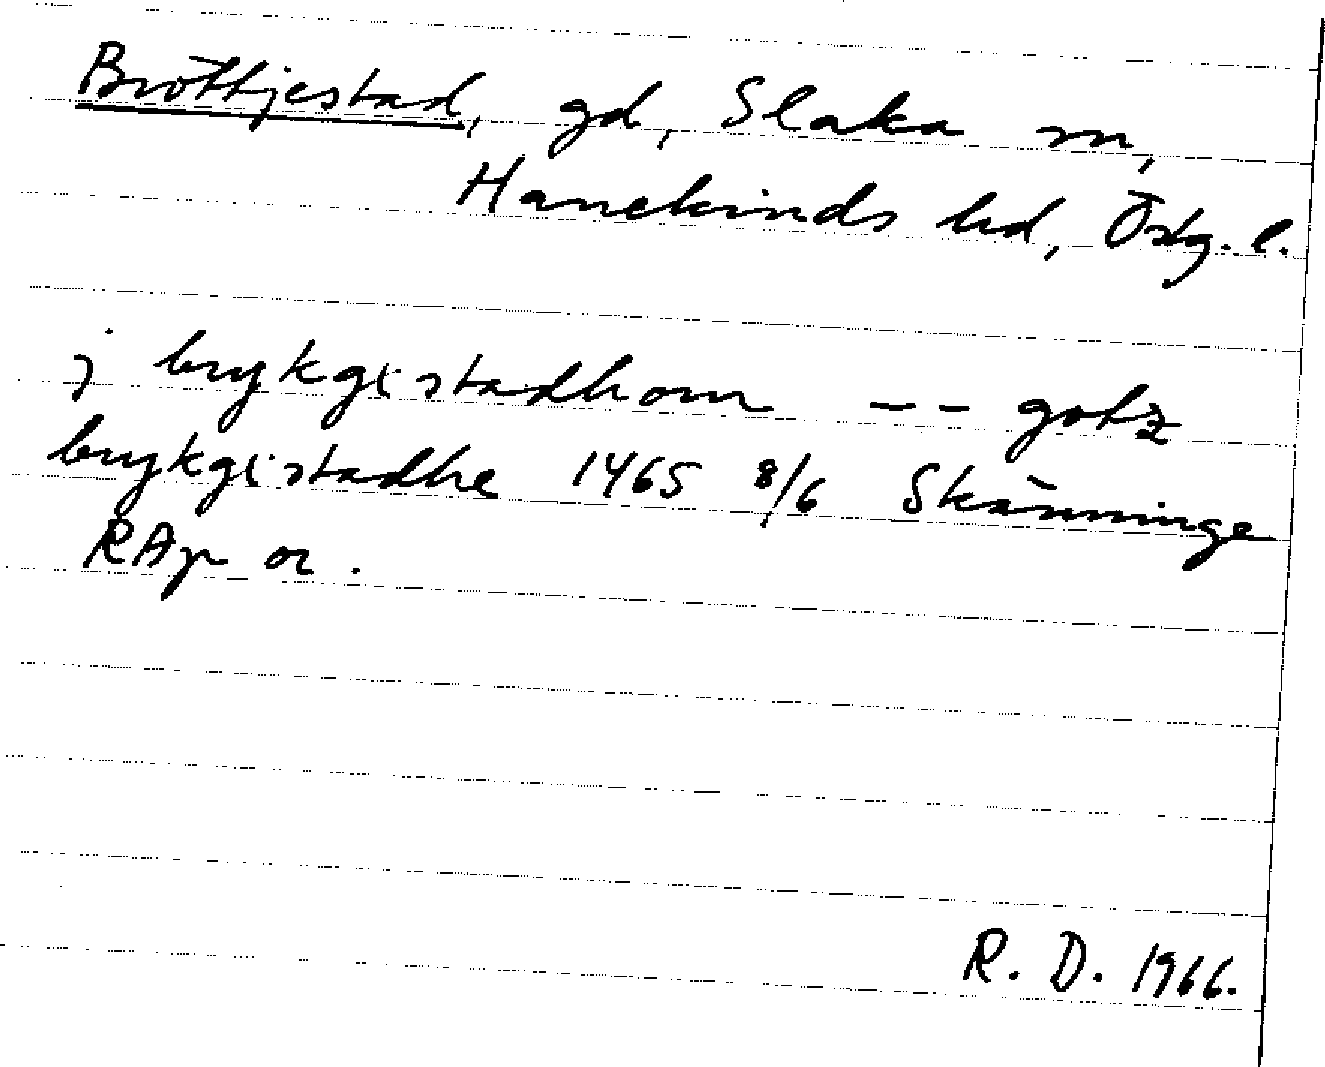 Bröttjestad, gd, Slaka sn,
Hanekinds hd, Östg. l.
j brykgistadhom -- gotz
brykgistadhe 1465 8/6 Skänninge
RAp or.
R. D. 1966.